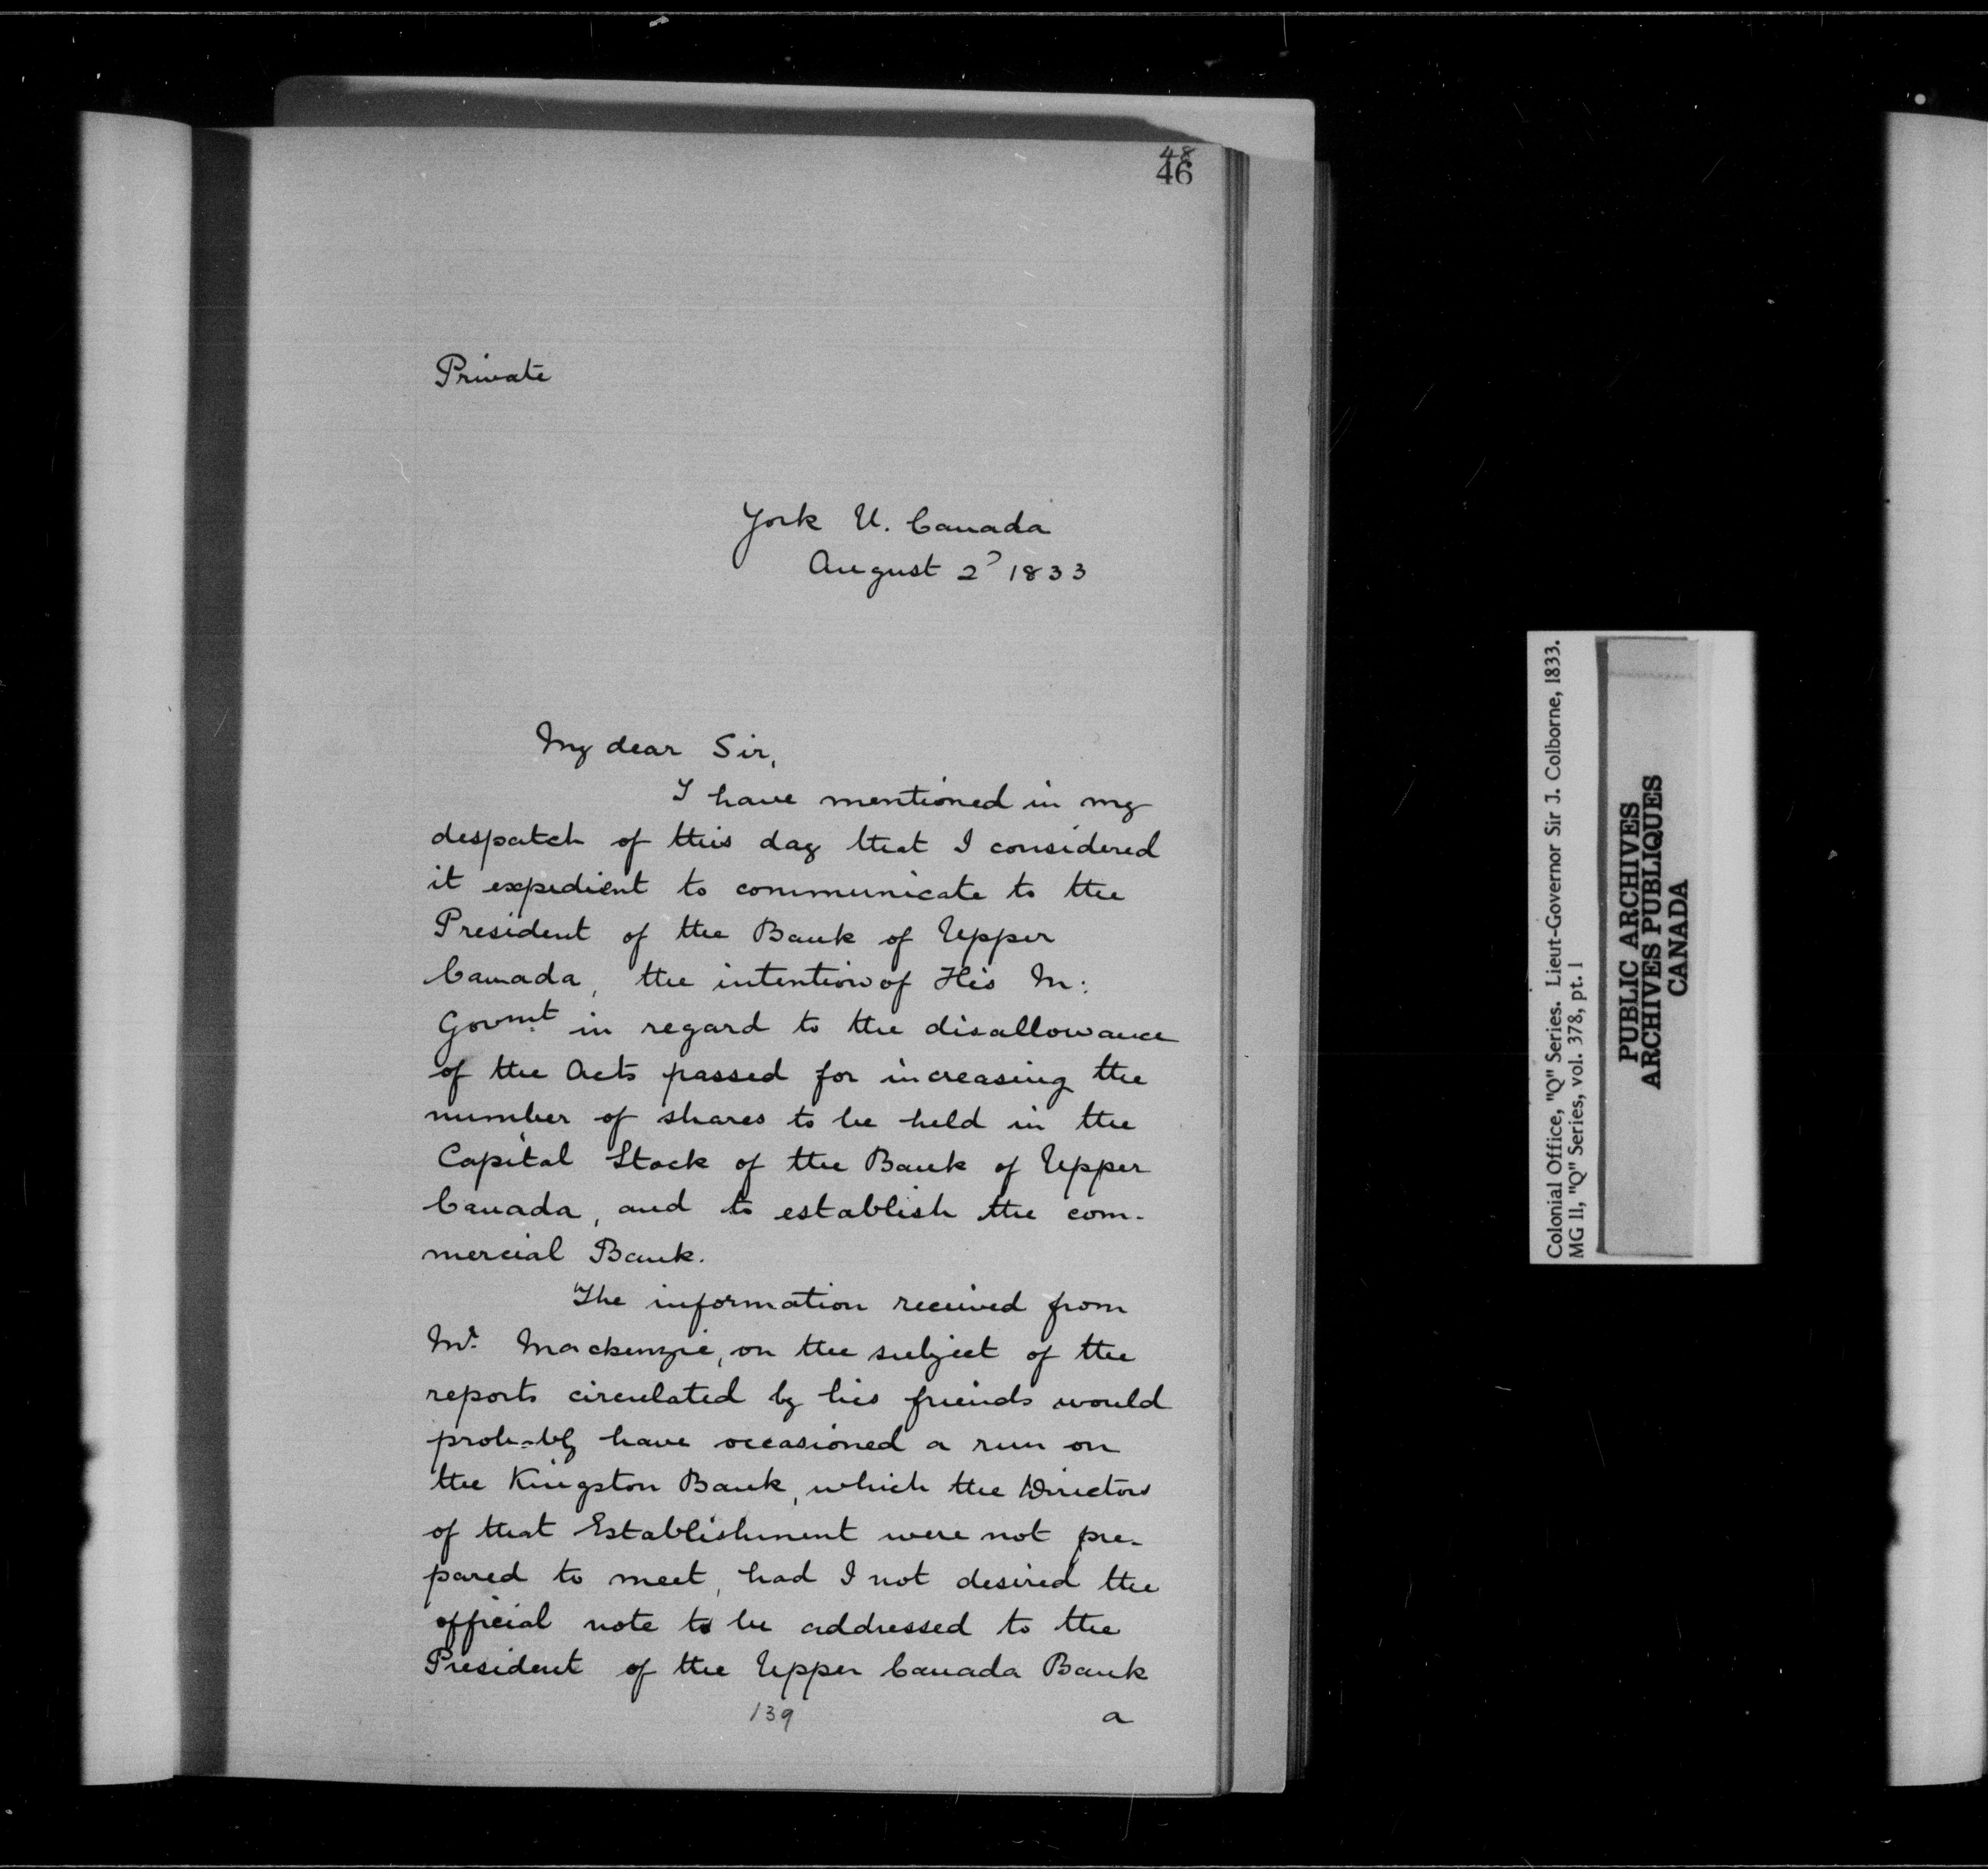 48
46
Private
York U. Canada
August 2ᵈ 1833
My dear Sir,
I have mentioned in my
despatch of this day that I considered
it expedient to communicate to the
President of the Bank of Upper
Canada, the intention of His M:
Govmt in regard to the disallowance
of the Acts passed for increasing the
number of shares to be held in the
Capital Stock of the Bank of Upper
Canada, and to establish the com-
mercial Bank.
The information received from
Mr. Mackenzie, on the subject of the
reports circulated by his friends would
probably have occasioned a run on
the Kingston Bank, which the Directors
of that Establishment were not pre-
pared to meet, had I not desired the
official note to be addressed to the
President of the Upper Canada Bank
139
a
Colonial Office, "Q" Series. Lieut-Governor Sir J. Colborne, 1833.
MG 11, "Q" Series, vol. 378, pt. 1
PUBLIC ARCHIVES
ARCHIVES PUBLIQUES
CANADA